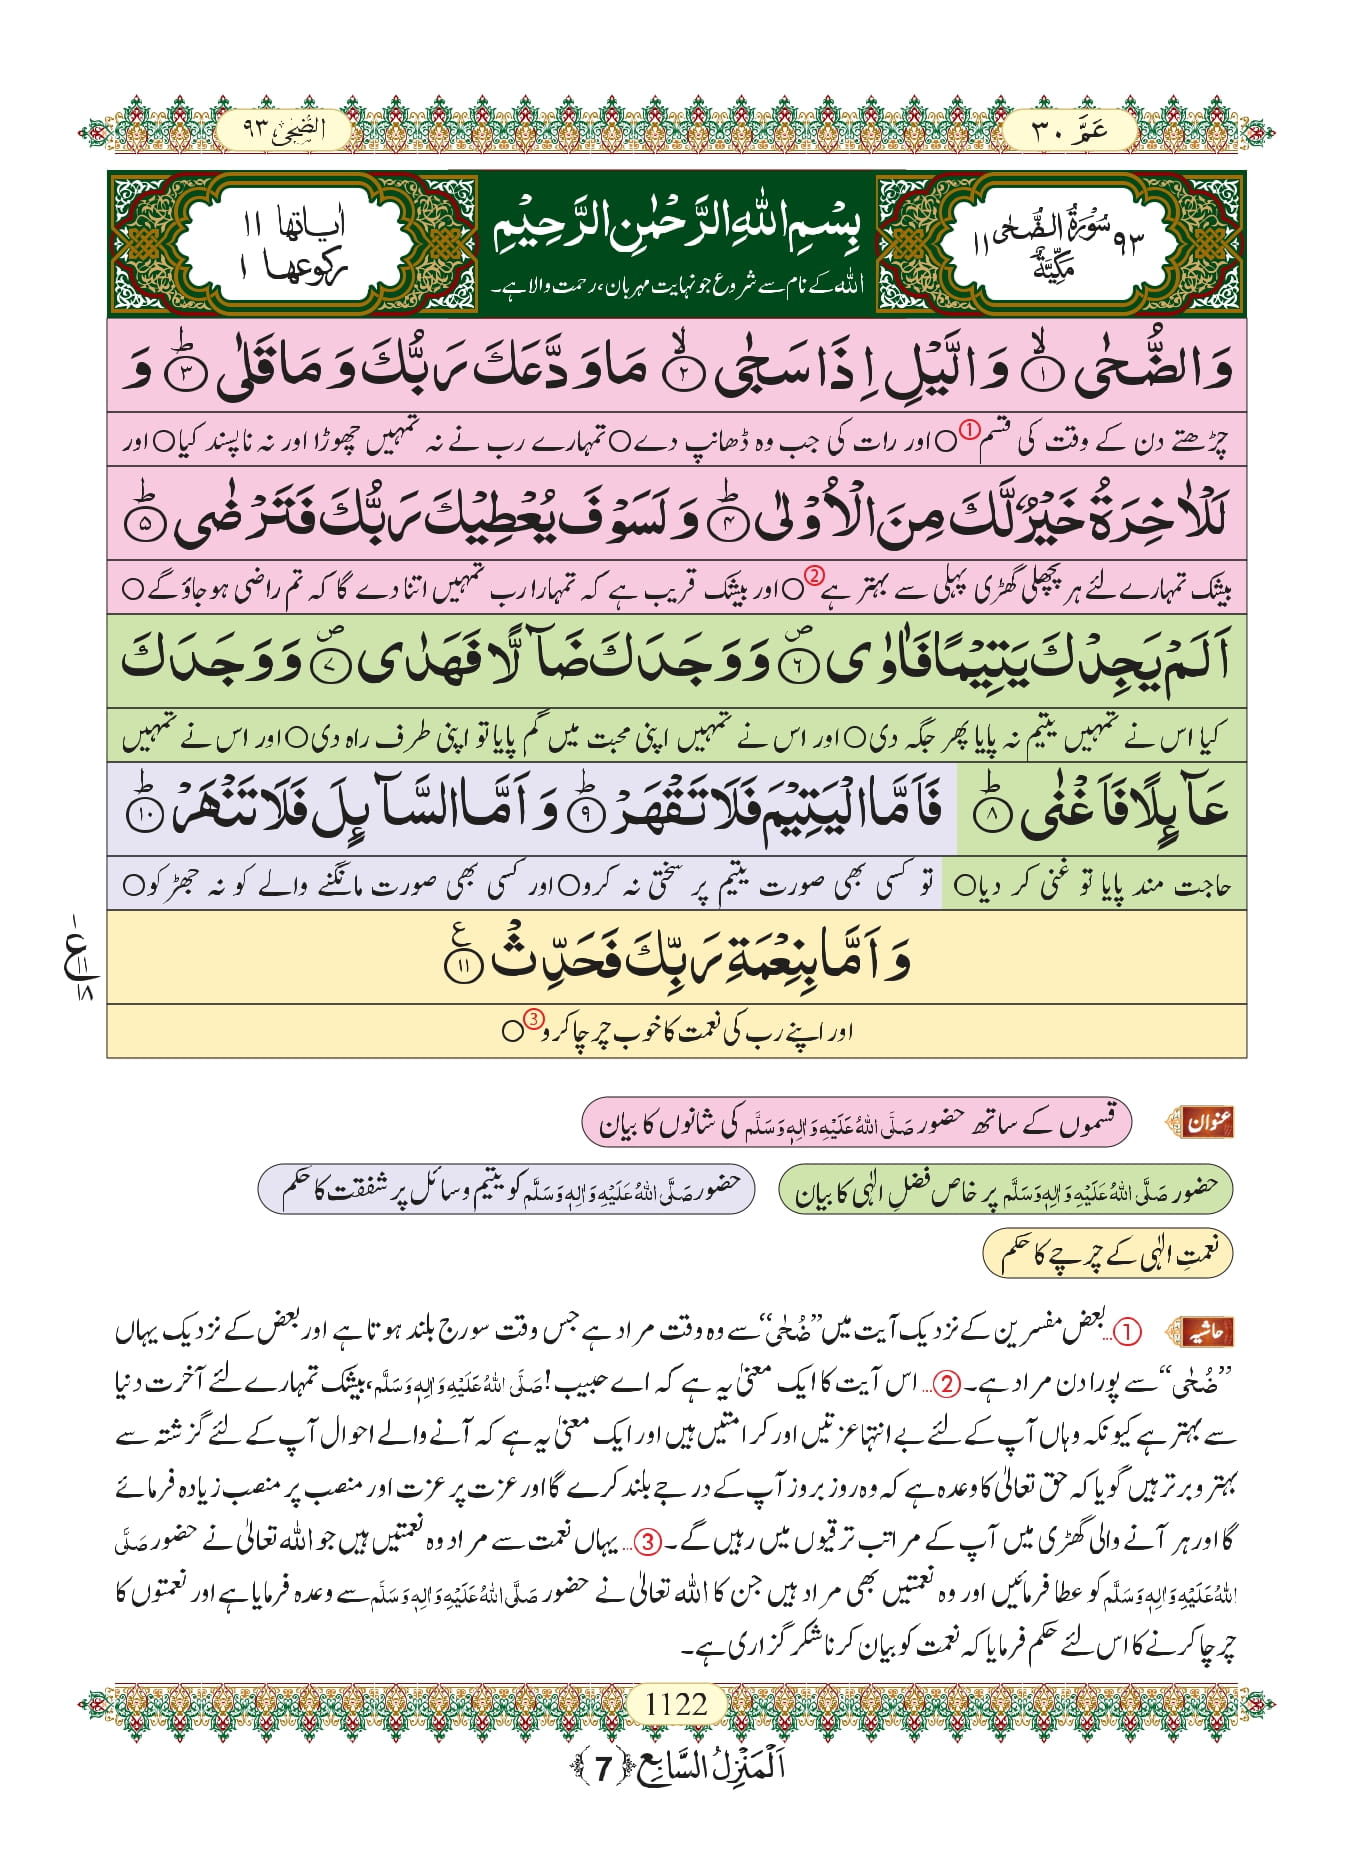 عَمَّ ۳۰
الضُّحٰی ۹۳
۹۳ سُوْرَۃُ الضُّحٰی ۱۱
مَکِّیَّۃٌ
بِسْمِ اللّٰہِ الرَّحْمٰنِ الرَّحِیْمِ
اللّٰہ کے نام سے شروع جو نہایت مہربان، رحمت والا ہے۔
اٰیاتھا ۱۱
رکوعھا ۱
وَالضُّحٰی ۙ﴿۱﴾ وَ الَّیْلِ اِذَا سَجٰی ۙ﴿۲﴾ مَا وَدَّعَکَ رَبُّکَ وَ مَا قَلٰی ؕ﴿۳﴾ وَ
چڑھتے دن کے وقت کی قسم①○ اور رات کی جب وہ ڈھانپ دے○ تمہارے رب نے نہ تمہیں چھوڑا اور نہ ناپسند کیا○ اور
لَلْاٰخِرَۃُ خَیْرٌ لَّکَ مِنَ الْاُوْلٰی ؕ﴿۴﴾ وَ لَسَوْفَ یُعْطِیْکَ رَبُّکَ فَتَرْضٰی ؕ﴿۵﴾
بیشک تمہارے لئے ہر پچھلی گھڑی پہلی سے بہتر ہے②○ اور بیشک قریب ہے کہ تمہارا رب تمہیں اتنا دے گا کہ تم راضی ہو جاؤ گے○
اَلَمْ یَجِدْکَ یَتِیْمًا فَاٰوٰی ۪﴿۶﴾ وَ وَجَدَکَ ضَآلًّا فَہَدٰی ۪﴿۷﴾ وَ وَجَدَکَ
کیا اس نے تمہیں یتیم نہ پایا پھر جگہ دی○ اور اس نے تمہیں اپنی محبت میں گم پایا تو اپنی طرف راہ دی○ اور اس نے تمہیں
عَآئِلًا فَاَغْنٰی ؕ﴿۸﴾ فَاَمَّا الْیَتِیْمَ فَلَا تَقْہَرْ ؕ﴿۹﴾ وَ اَمَّا السَّآئِلَ فَلَا تَنْہَرْ ؕ﴿۱۰﴾
حاجت مند پایا تو غنی کر دیا○ تو کسی بھی صورت یتیم پر سختی نہ کرو○ اور کسی بھی صورت مانگنے والے کو نہ جھڑکو○
وَ اَمَّا بِنِعْمَۃِ رَبِّکَ فَحَدِّثْ ﴿۱۱﴾ ع
۱
ع
۱۱
۱۸
اور اپنے رب کی نعمت کا خوب چرچا کرو③○
عنوان
قسموں کے ساتھ حضور صَلَّی اللہُ عَلَیْہِ وَاٰلِہٖ وَسَلَّم کی شانوں کا بیان
حضور صَلَّی اللہُ عَلَیْہِ وَاٰلِہٖ وَسَلَّم پر خاص فضلِ الٰہی کا بیان
حضور صَلَّی اللہُ عَلَیْہِ وَاٰلِہٖ وَسَلَّم کو یتیم و سائل پر شفقت کا حکم
نعمتِ الٰہی کے چرچے کا حکم
حاشیہ
①… بعض مفسرین کے نزدیک آیت میں ”ضُحٰی“ سے وہ وقت مراد ہے جس وقت سورج بلند ہوتا ہے اور بعض کے نزدیک یہاں
”ضُحٰی“ سے پورا دن مراد ہے۔ ②… اس آیت کا ایک معنیٰ یہ ہے کہ اے حبیب! صَلَّی اللہُ عَلَیْہِ وَاٰلِہٖ وَسَلَّم، بیشک تمہارے لئے آخرت دنیا
سے بہتر ہے کیونکہ وہاں آپ کے لئے بے انتہا عزتیں اور کرامتیں ہیں اور ایک معنیٰ یہ ہے کہ آنے والے احوال آپ کے لئے گزشتہ سے
بہتر و برتر ہیں گویا کہ حق تعالیٰ کا وعدہ ہے کہ وہ روز بروز آپ کے درجے بلند کرے گا اور عزت پر عزت اور منصب پر منصب زیادہ فرمائے
گا اور ہر آنے والی گھڑی میں آپ کے مراتب ترقیوں میں رہیں گے۔ ③… یہاں نعمت سے مراد وہ نعمتیں ہیں جو اللّٰہ تعالیٰ نے حضور صَلَّی
اللہُ عَلَیْہِ وَاٰلِہٖ وَسَلَّم کو عطا فرمائیں اور وہ نعمتیں بھی مراد ہیں جن کا اللّٰہ تعالیٰ نے حضور صَلَّی اللہُ عَلَیْہِ وَاٰلِہٖ وَسَلَّم سے وعدہ فرمایا ہے اور نعمتوں کا
چرچا کرنے کا اس لئے حکم فرمایا کہ نعمت کو بیان کرنا شکر گزاری ہے۔
1122
اَلْمَنْزِلُ السَّابِع ﴿7﴾